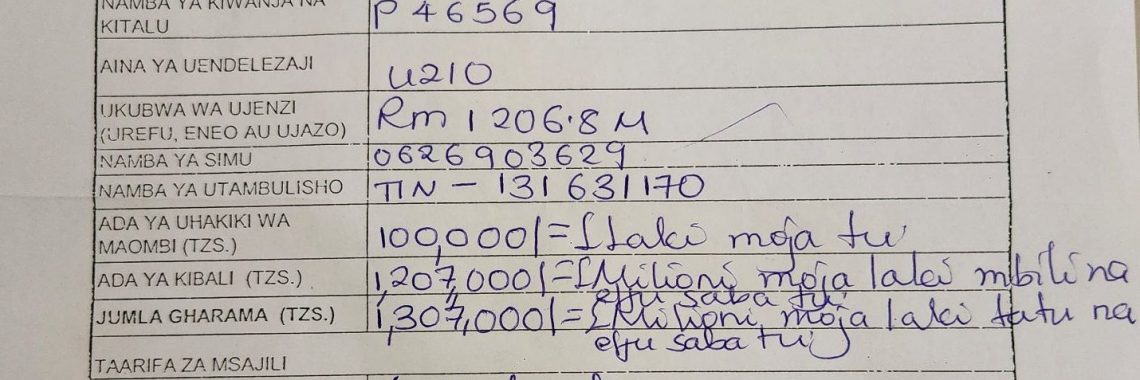 NAMBA YA KIWANJA NA
KITALU
P 46569
AINA YA UENDELEZAJI
U210
UKUBWA WA UJENZI
(UREFU, ENEO AU UJAZO)
Rm 1206.8 M
NAMBA YA SIMU
0626903629
NAMBA YA UTAMBULISHO
TIN - 131 631 170
ADA YA UHAKIKI WA
MAOMBI (TZS.)
100,000/= [Laki moja tu
ADA YA KIBALI (TZS.)
1,207,000/= [Milioni moja laki mbili na
elfu saba tu
JUMLA GHARAMA (TZS.)
1,307,000/= [Milioni moja laki tatu na
elfu saba tu]
TAARIFA ZA MSAJILI